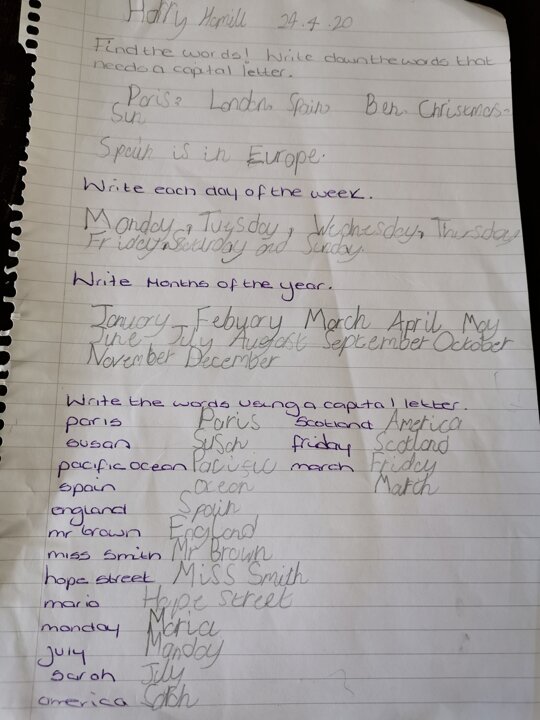 Harry Hamill 24.4.20
Find the words! Write down the words that
needs a capital letter.
Paris, London, Spain, Ben, Christmas
Sun
Spain is in Europe.
Write each day of the week.
Monday, Tuesday, Wednesday, Thursday
Friday, Saturday and Sunday.
Write Months of the year.
January Febuary March April May
June July August September October
November December
Write the words using a capital letter.
paris Paris scotland America
susan Susan friday Scotland
pacific ocean Pacific march Friday
spain ocean March
england Spain
mr brown England
miss smith Mr Brown
hope street Miss Smith
maria Hope street
monday Maria
july Monday
sarah July
america Sarah